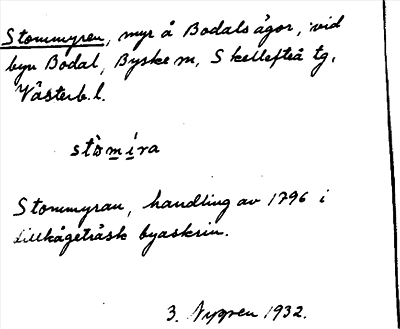 Stommyren, myr å Bodalsågor, vid
byn Bodal, Byske m, Skellefteå tg,
Västerb. l.
stòmíra
Stommyran, handling av 1796 i
Lillkågeträsk byaskrin.
3. Nygren 1932.